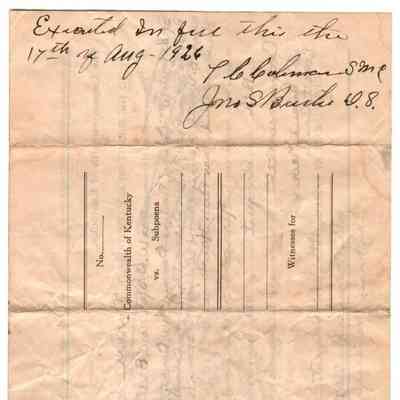 Executed In full this the
17th of Aug-1926
T C Coleman S M C
Jno S Burke D.S.
No.
Commonwealth of Kentucky
vs. Subpoena
Witnesses for